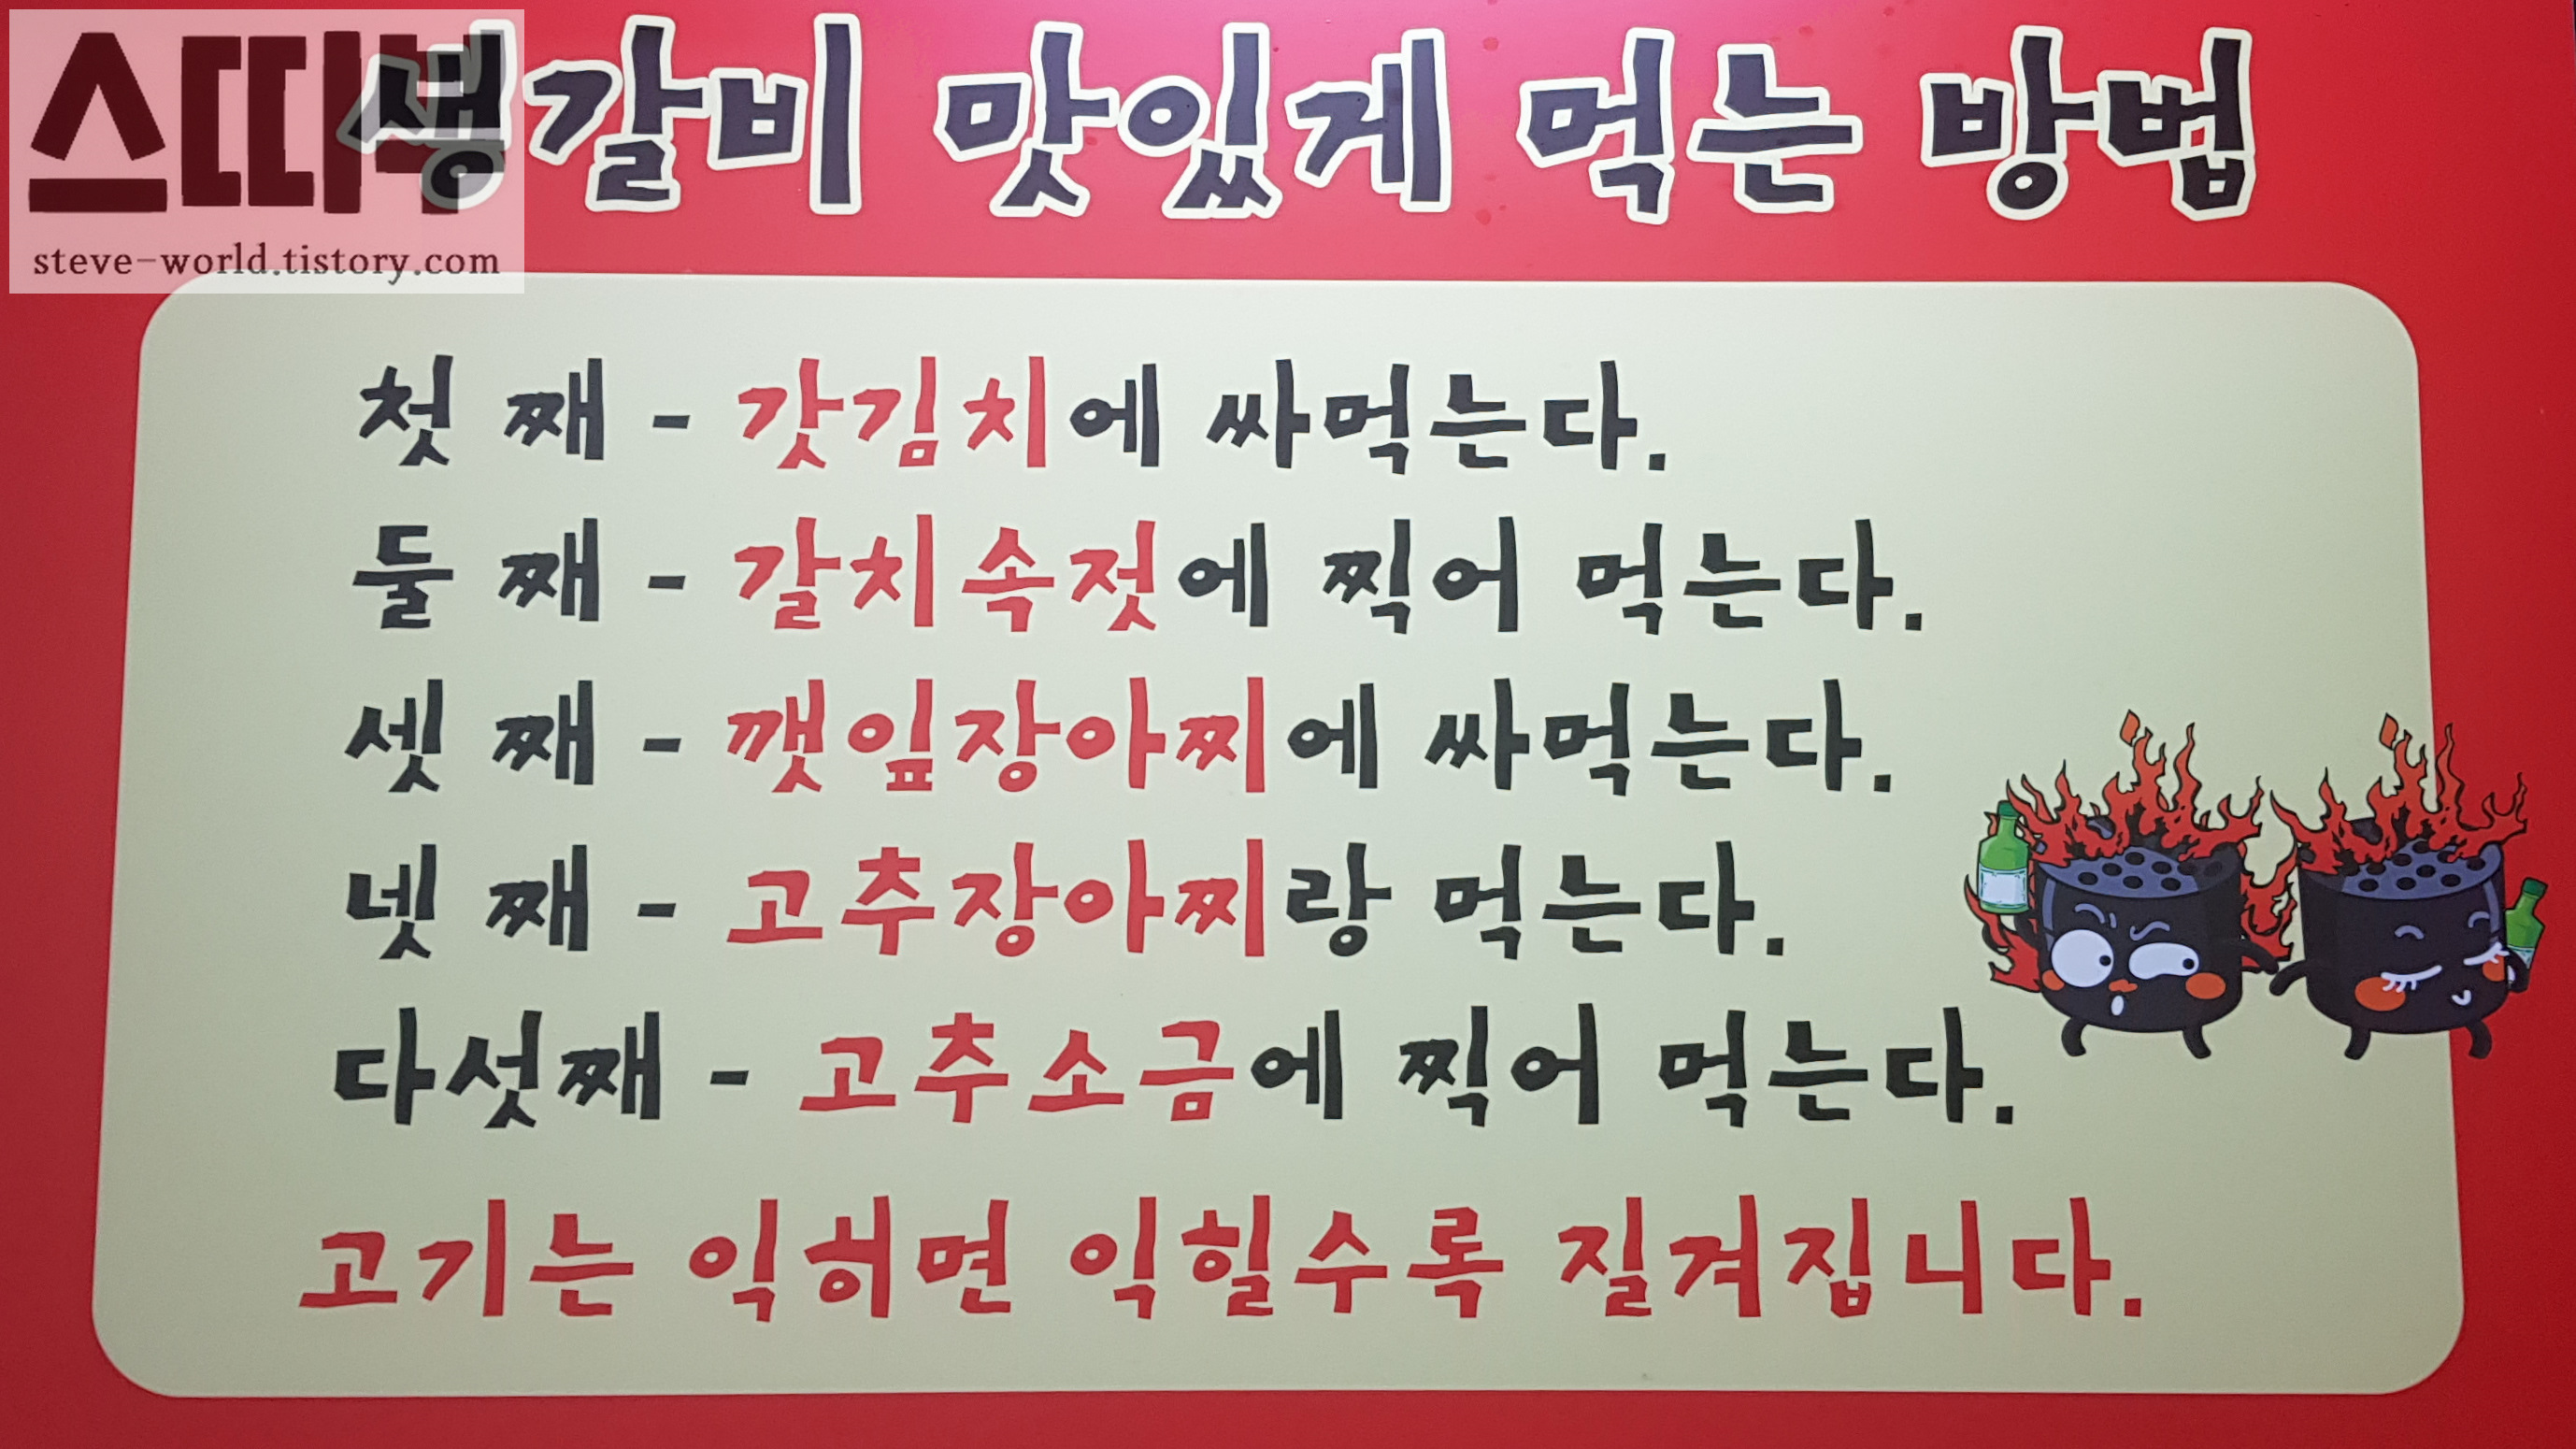 스띠브
steve-world.tistory.com
생갈비 맛있게 먹는 방법
첫 째 - 갓김치에 싸먹는다.
둘 째 - 갈치속젓에 찍어 먹는다.
셋 째 - 깻잎장아찌에 싸먹는다.
넷 째 - 고추장아찌랑 먹는다.
다섯째 - 고추소금에 찍어 먹는다.
고기는 익히면 익힐수록 질겨집니다.